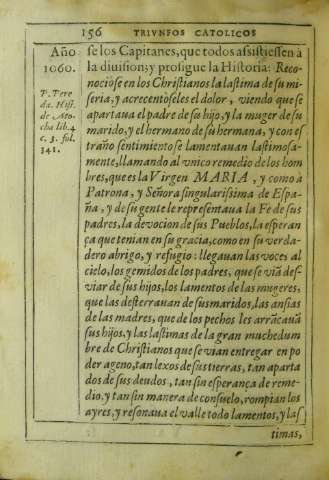 156 TRIVNFOS CATOLICOS
Año
1060.
P. Pere
da. Hist.
de Ato
cha lib. 4
c. 3. fol.
341.
se los Capitanes, que todos assistiessen à
la diuision; y prosigue la Historia: Reco-
nociòse en los Christianos la lastima de su mi
seria, y acrecentòseles el dolor, viendo que se
apartaua el padre de su hijo, y la muger de su
marido, y el hermano de su hermana, y con es
traño sentimiento se lamentauan lastimosa-
mente, llamando al vnico remedio de los hom
bres, que es la Virgen MARIA, y como à
Patrona, y Señora singularissima de Espa-
ña, y de su gente le representaua la Fe de sus
padres, la deuocion de sus Pueblos, la esperan
ça que tenian en su gracia, como en su verda-
dero abrigo, y refugio: llegauan las voces al
cielo, los gemidos de los padres, que se viã des-
viar de sus hijos, los lamentos de las mugeres,
que las desterrauan de sus maridos, las ansias
de las madres, que de los pechos les arrãcauã
sus hijos, y las lastimas de la gran muchedum
bre de Christianos que se vian entregar en po
der ageno, tan lexos de sus tierras, tan aparta
dos de sus deudos, tan sin esperança de reme-
dio, y tan sin manera de consuelo, rompian los
ayres, y resonaua el valle todo lamentos, y las
timas,